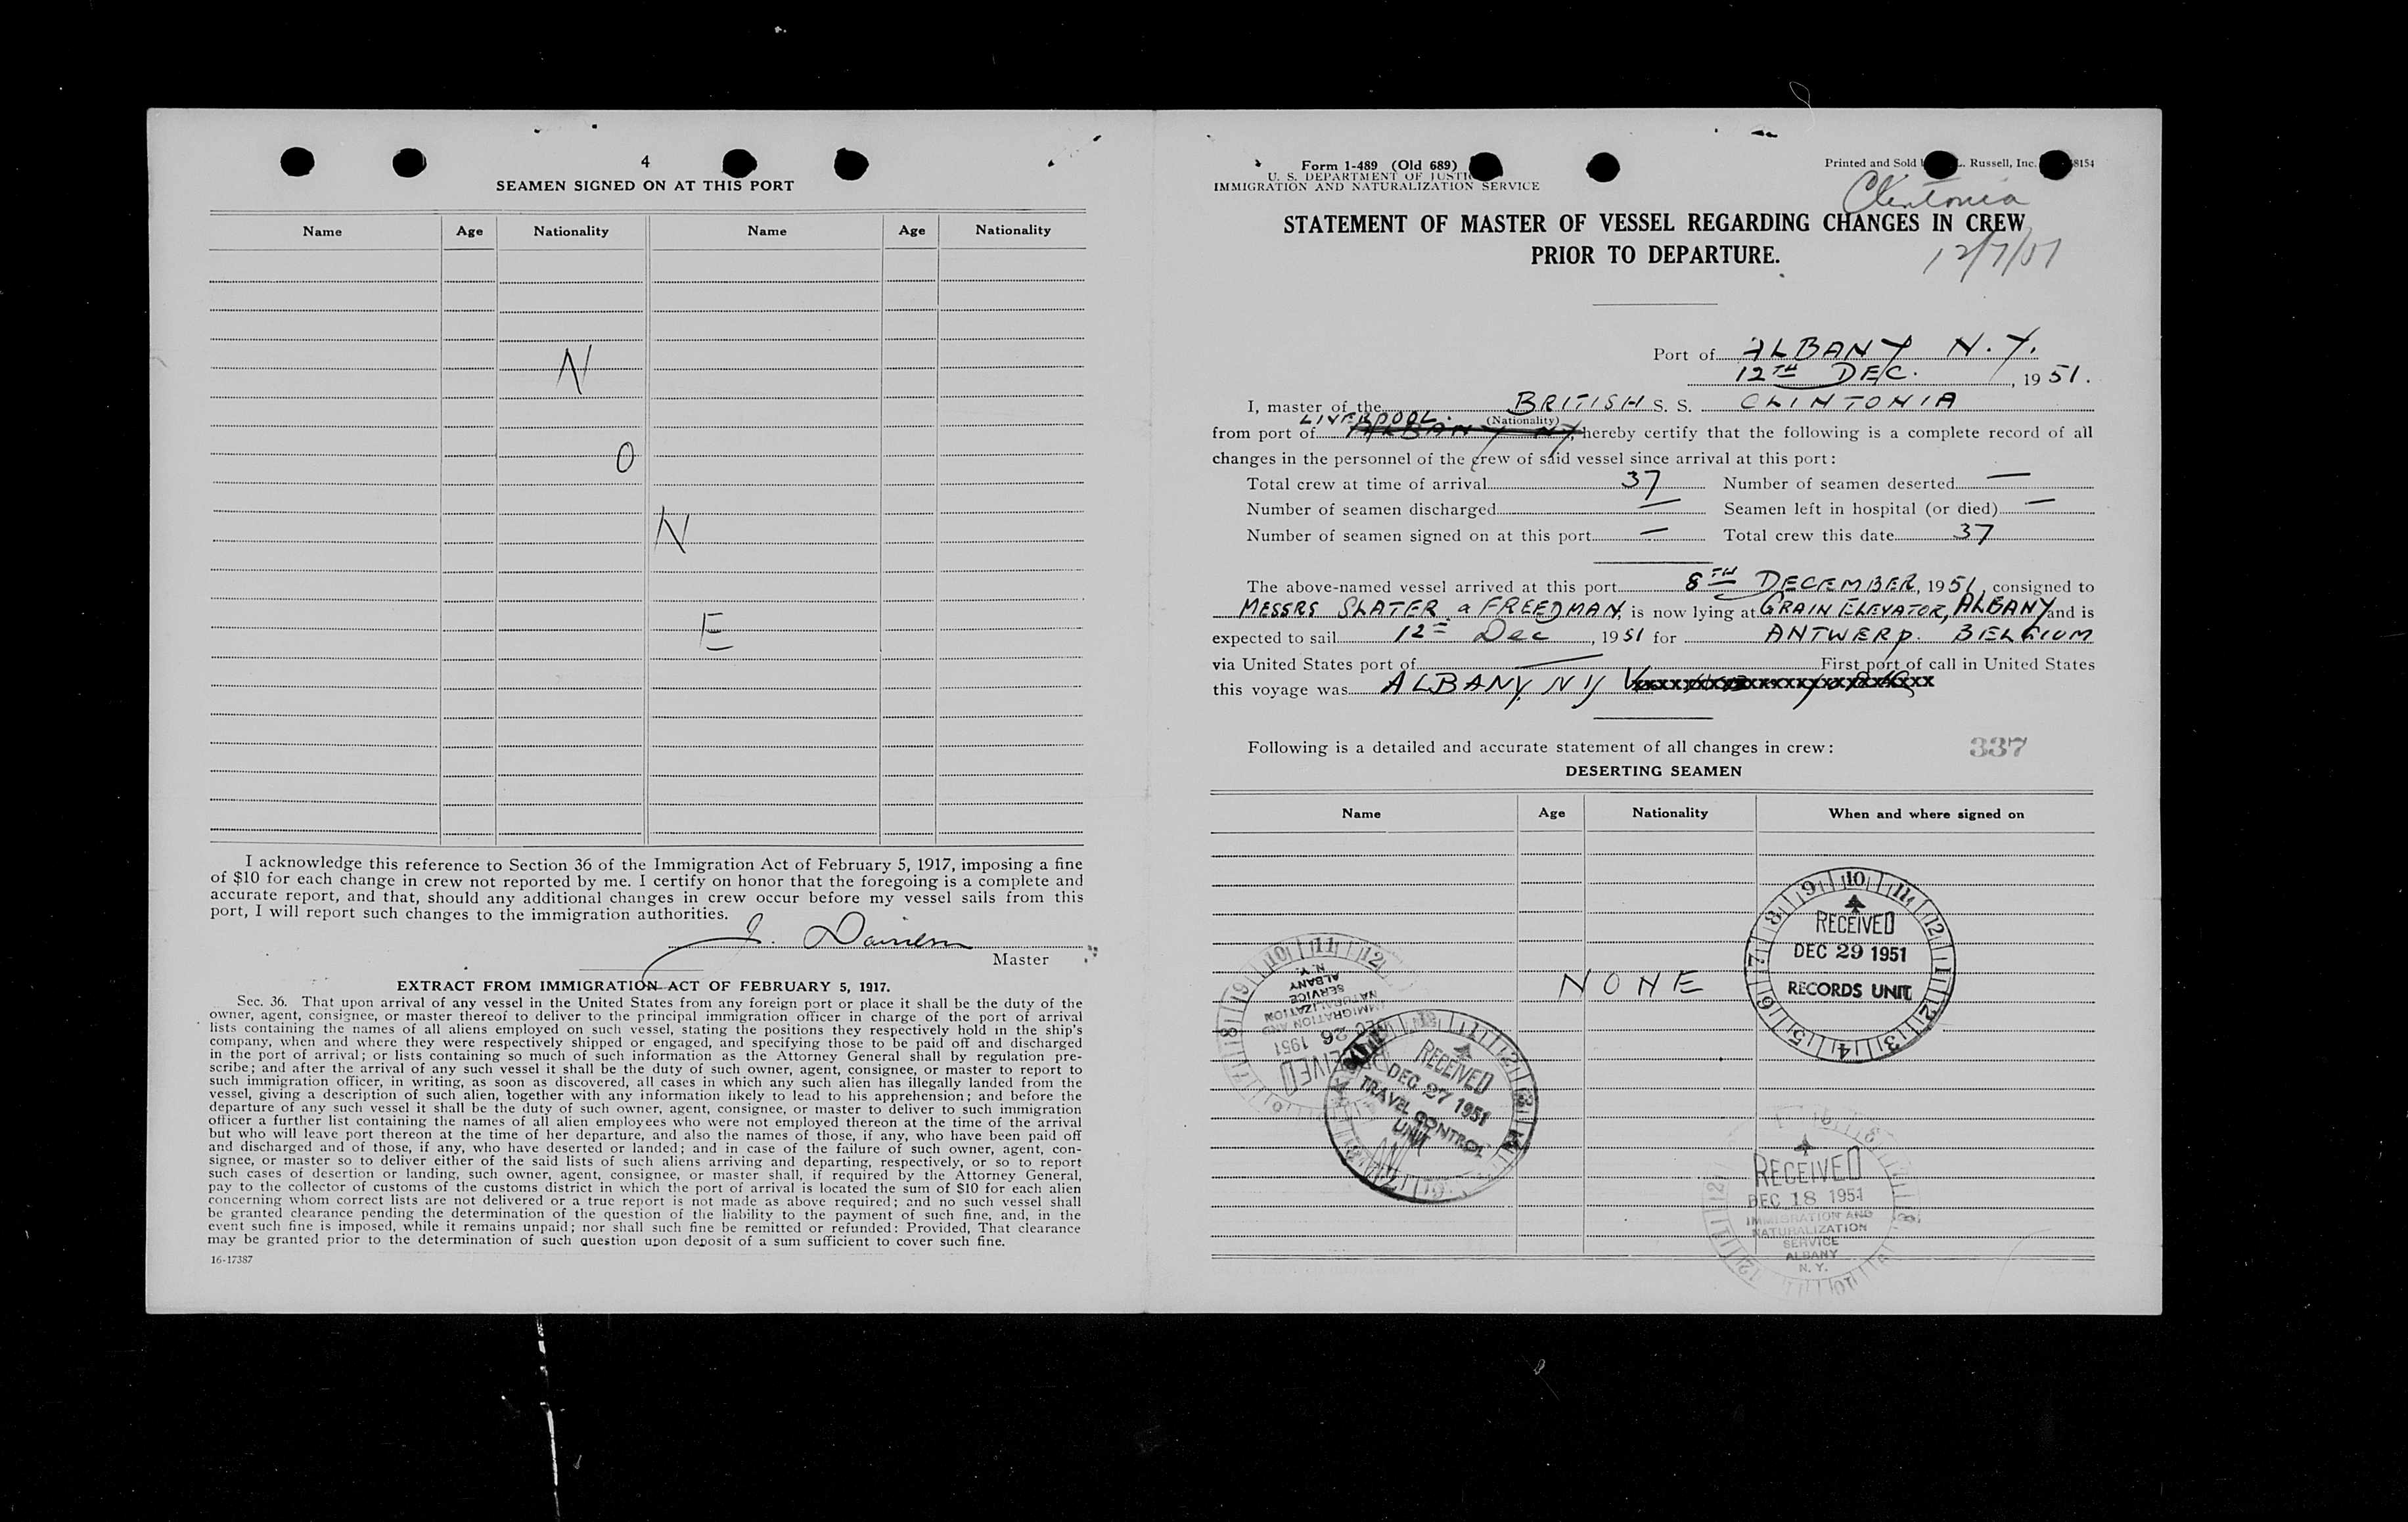 4
SEAMEN SIGNED ON AT THIS PORT
Name Age Nationality Name Age Nationality
N
O
N
E
I acknowledge this reference to Section 36 of the Immigration Act of February 5, 1917, imposing a fine
of $10 for each change in crew not reported by me. I certify on honor that the foregoing is a complete and
accurate report, and that, should any additional changes in crew occur before my vessel sails from this
port, I will report such changes to the immigration authorities.
J.
Master
EXTRACT FROM IMMIGRATION ACT OF FEBRUARY 5, 1917.
Sec. 36. That upon arrival of any vessel in the United States from any foreign port or place it shall be the duty of the
owner, agent, consignee, or master thereof to deliver to the principal immigration officer in charge of the port of arrival
lists containing the names of all aliens employed on such vessel, stating the positions they respectively hold in the ship's
company, when and where they were respectively shipped or engaged, and specifying those to be paid off and discharged
in the port of arrival; or lists containing so much of such information as the Attorney General shall by regulation pre-
scribe; and after the arrival of any such vessel it shall be the duty of such owner, agent, consignee, or master to report to
such immigration officer, in writing, as soon as discovered, all cases in which any such alien has illegally landed from the
vessel, giving a description of such alien, together with any information likely to lead to his apprehension; and before the
departure of any such vessel it shall be the duty of such owner, agent, consignee, or master to deliver to such immigration
officer a further list containing the names of all alien employees who were not employed thereon at the time of the arrival
but who will leave port thereon at the time of her departure, and also the names of those, if any, who have been paid off
and discharged and of those, if any, who have deserted or landed; and in case of the failure of such owner, agent, con-
signee, or master so to deliver either of the said lists of such aliens arriving and departing, respectively, or so to report
such cases of desertion or landing, such owner, agent, consignee, or master shall, if required by the Attorney General,
pay to the collector of customs of the customs district in which the port of arrival is located the sum of $10 for each alien
concerning whom correct lists are not delivered or a true report is not made as above required; and no such vessel shall
be granted clearance pending the determination of the question of the liability to the payment of such fine, and, in the
event such fine is imposed, while it remains unpaid; nor shall such fine be remitted or refunded: Provided, That clearance
may be granted prior to the determination of such question upon deposit of a sum sufficient to cover such fine.
16-17387
Form 1-489 (Old 689)
U. S. DEPARTMENT OF JUSTI
IMMIGRATION AND NATURALIZATION SERVICE
Printed and Sold L. Russell, Inc. 8154
Clintonia
STATEMENT OF MASTER OF VESSEL REGARDING CHANGES IN CREW
PRIOR TO DEPARTURE.
12/7/51
Port of ALBANY N.Y.
12TH DEC. , 19 51.
I, master of the BRITISH S. S. CLINTONIA
LIVERPOOL. (Nationality)
from port of ALBANY NY, hereby certify that the following is a complete record of all
changes in the personnel of the crew of said vessel since arrival at this port:
Total crew at time of arrival 37 Number of seamen deserted —
Number of seamen discharged — Seamen left in hospital (or died) —
Number of seamen signed on at this port — Total crew this date 37
The above-named vessel arrived at this port 8TH DECEMBER, 1951, consigned to
MESSRS SLATER & FREEDMAN, is now lying at GRAIN ELEVATOR, ALBANY and is
expected to sail 12TH Dec , 1951 for ANTWERP. BELGIUM
via United States port of — First port of call in United States
this voyage was ALBANY, NY
Following is a detailed and accurate statement of all changes in crew: 337
DESERTING SEAMEN
Name Age Nationality When and where signed on
NONE
RECEIVED
DEC 29 1951
RECORDS UNIT
RECEIVED
DEC 26 1951
IMMIGRATION AND
NATURALIZATION
SERVICE
ALBANY
N. Y.
RECEIVED
DEC 27 1951
TRAVEL CONTROL
UNIT
RECEIVED
DEC 18 1951
IMMIGRATION AND
NATURALIZATION
SERVICE
ALBANY
N. Y.